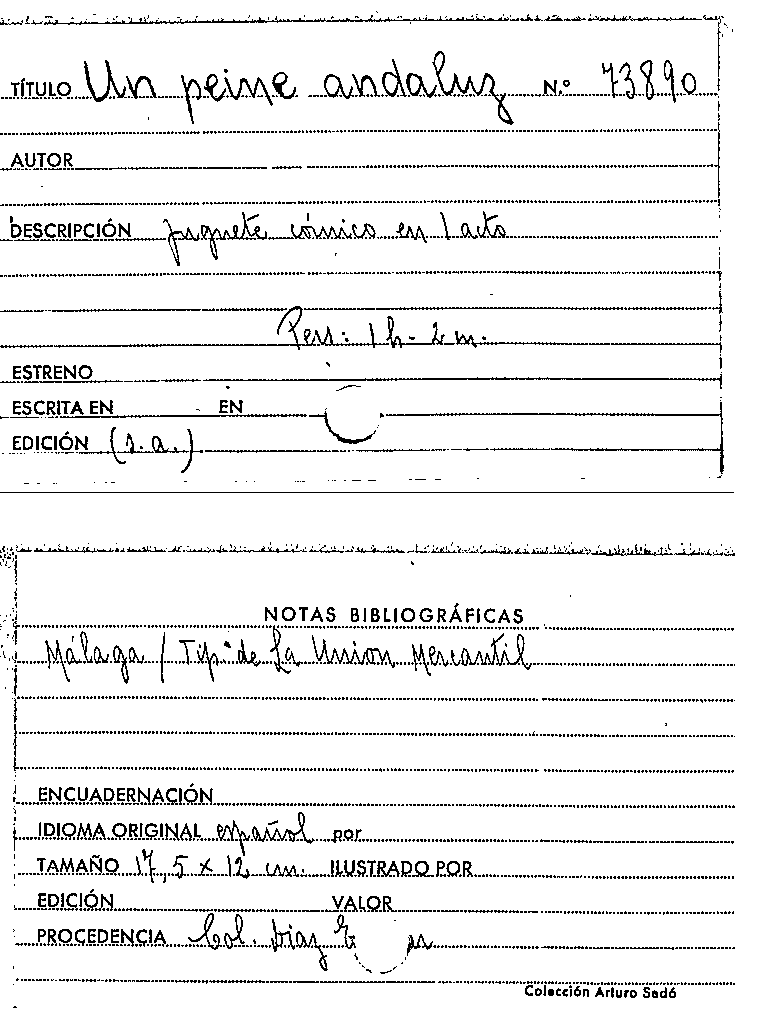 TÍTULO Un peine andaluz N.º 73890
AUTOR
DESCRIPCIÓN juguete cómico en 1 acto
Pers: 1 h. 2 m.
ESTRENO
ESCRITA EN EN
EDICIÓN (s.a.)
NOTAS BIBLIOGRÁFICAS
Málaga / Tip.ª de La Union Mercantil
ENCUADERNACIÓN
IDIOMA ORIGINAL español por
TAMAÑO 17,5 x 12 cm. ILUSTRADO POR
EDICIÓN VALOR
PROCEDENCIA Col. Díaz
Colección Arturo Sedó